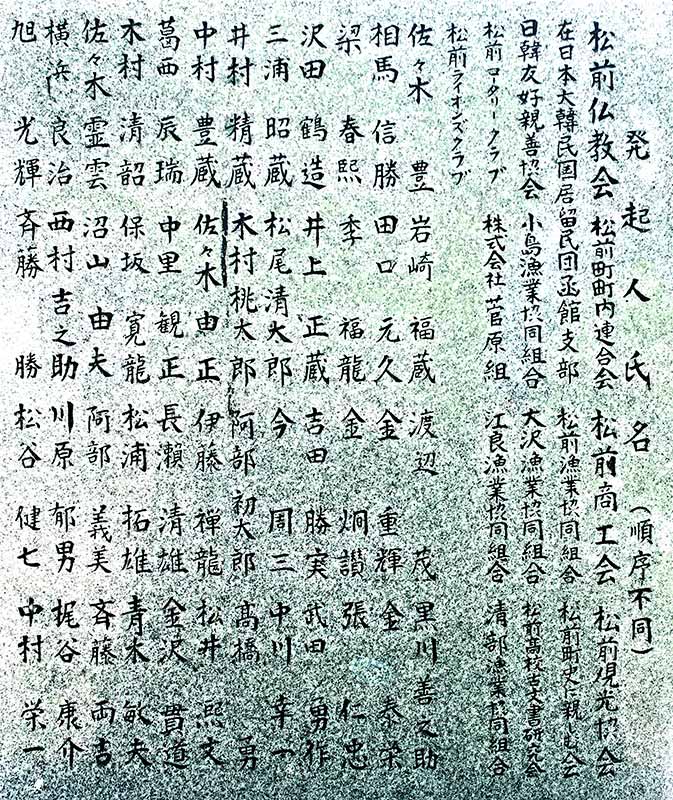 発起人氏名（順序不同）
松前仏教会 松前町町内連合会 松前商工会 松前観光協会
在日本大韓民国居留民団函館支部 松前漁業協同組合 松前町史に親しむ会
日韓友好親善協会 小島漁業協同組合 大沢漁業協同組合 松前高校古文書研究会
松前ロータリークラブ 株式会社菅原組 江良漁業協同組合 清部漁業協同組合
松前ライオンズクラブ
佐々木豊 岩崎福蔵 渡辺茂 黒川善之助
相馬信勝 田口元久 金重輝 金泰栄
梁春熙 李福龍 金炯讃 張仁忠
沢田鶴造 井上正蔵 吉田勝実 武田勇作
三浦昭蔵 松尾清大郎 今周三 中川幸一
井村精蔵 木村桃太郎 阿部初太郎 髙橋勇
中村豊蔵 佐々木由正 伊藤禅龍 松井熙文
葛西辰瑞 中里観正 長瀬清雄 金沢貫道
木村清韶 保坂寛龍 松浦拓雄 青木敏夫
佐々木霊雲 沼山由夫 阿部義美 斉藤両吉
横浜良治 西村吉之助 川原郁男 梶谷康介
旭光輝 斉藤勝 松谷健七 中村栄一